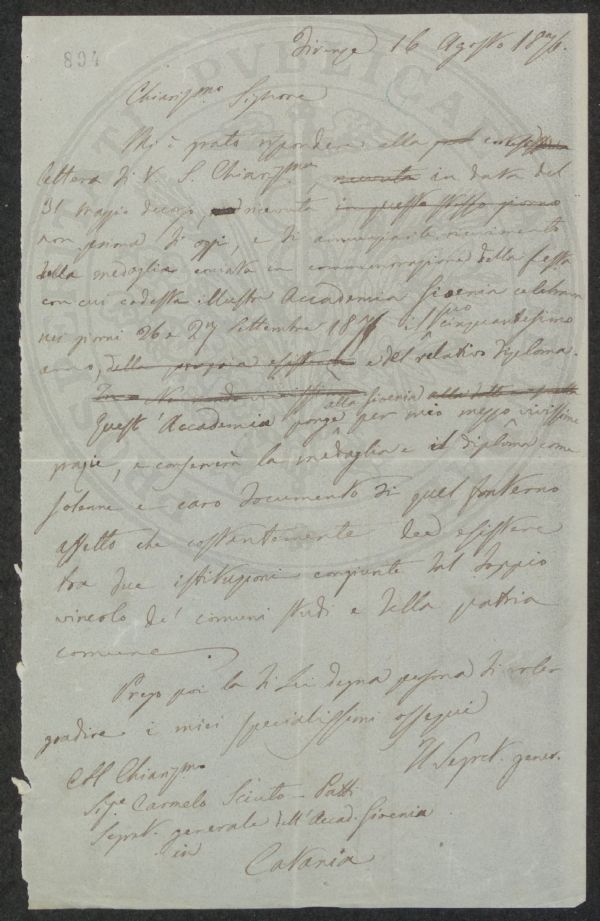 894
Firenze 16 Agosto 1876.
Chiarissmo Signore
Mi è grato rispondere alla
lettera di V. S. Chiarissma, ricevuta in data del
31 maggio decorso, ricevuta in questo stesso giorno
non prima di oggi, e di annunziarle ricevimento
della medaglia coniata in commemorazione della festa
con cui codesta illustre Accademia Gioenia celebrava
nei giorni 26 e 27 Settembre 1875 il suo cinquantesimo
anno, della propria esistenza e del relativo diploma.
Quest'Accademia porge alla Gioenia per mio mezzo vivissime
grazie, e conserverà la medaglia e il diploma come
solenne e caro documento di quel fraterno
affetto che costantemente dee esistere
tra due istituzioni congiunte dal doppio
vincolo de' comuni studi e della patria
comune.
Prego poi la di Lei degna persona di voler
gradire i miei specialissimi ossequi
Il Segret. gener.
Al Chiarissmo
Sige Carmelo Sciuto-Patti
Segret. generale dell'Accad. Gioenia
in
Catania